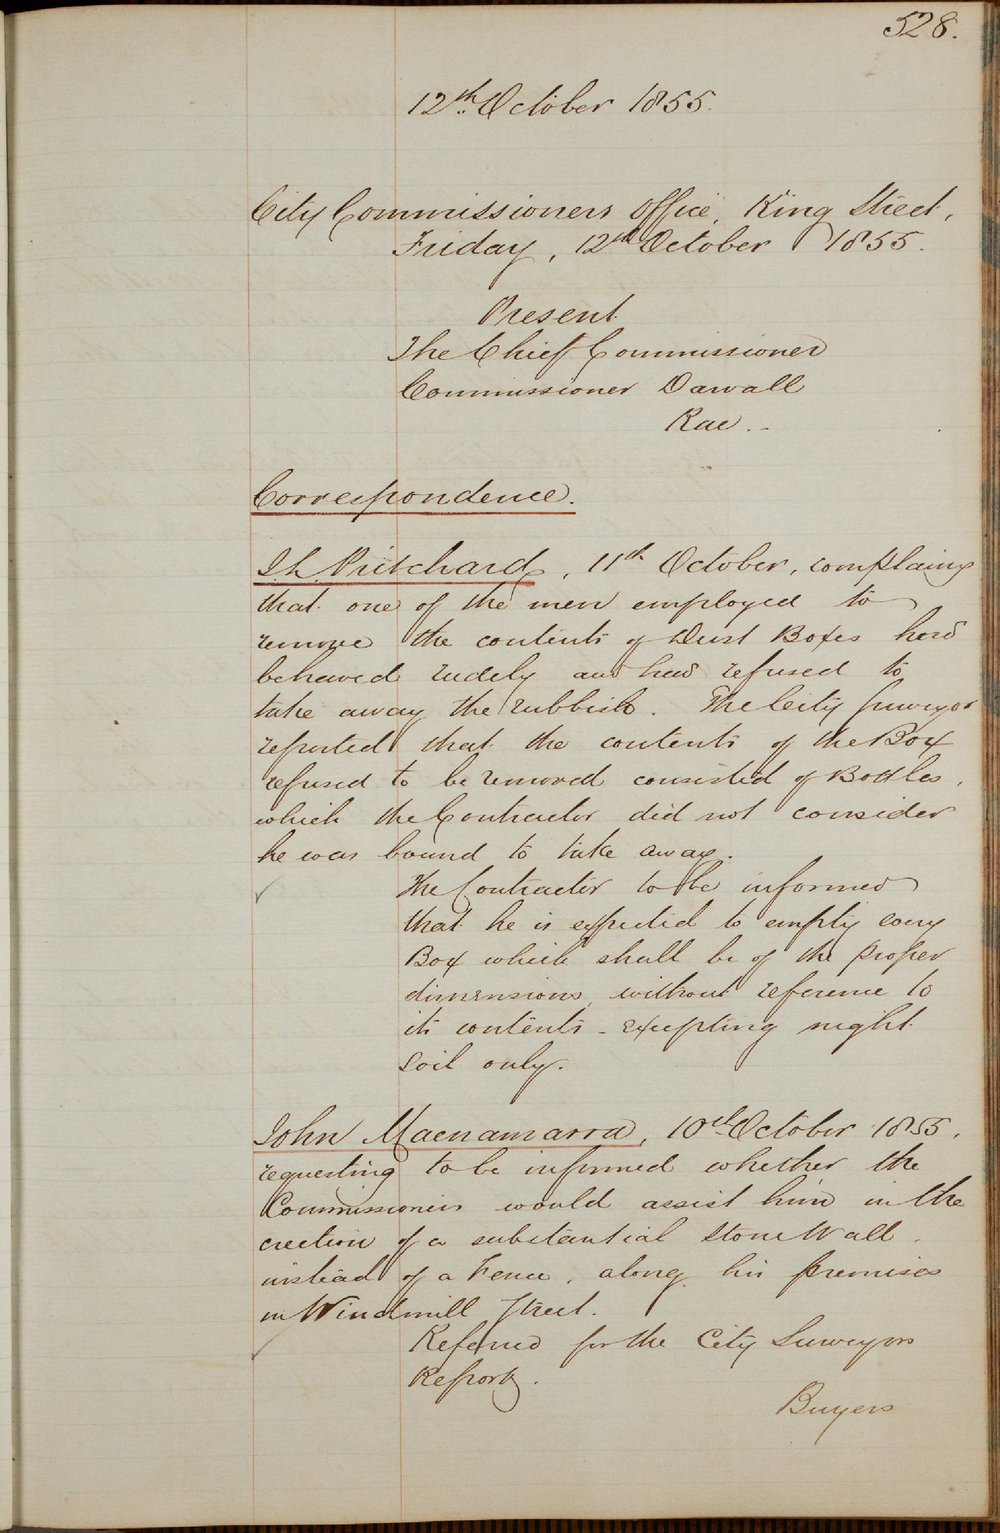 528.
12th October 1855.
City Commissioners Office, King Street,
Friday, 12th October 1855.
Present
The Chief Commissioner
Commissioner Darvall
Rae. -
Correspondence.
Pritchard, 11th October, complaing
that one of the men employed to
remove the contents of Dust Boxes had
behaved rudely and had refused to
take away the rubbish. The City Surveyor
reported that the contents of the Box
refused to be removed consisted of Bottles,
which the Contractor did not consider
he was bound to take away.
The Contractor to be informed
that he is expected to empty every
Box which shall be of the proper
dimensions, without reference to
its contents - excepting night
soil only.
John Macnamarra, 10th October 1855,
requesting to be informed whether the
Commissioners would assist him in the
erection of a substantial Stone Wall,
instead of a Fence, along his premises
in Windmill Street.
Referred for the City Surveyors
Report.
Buyers